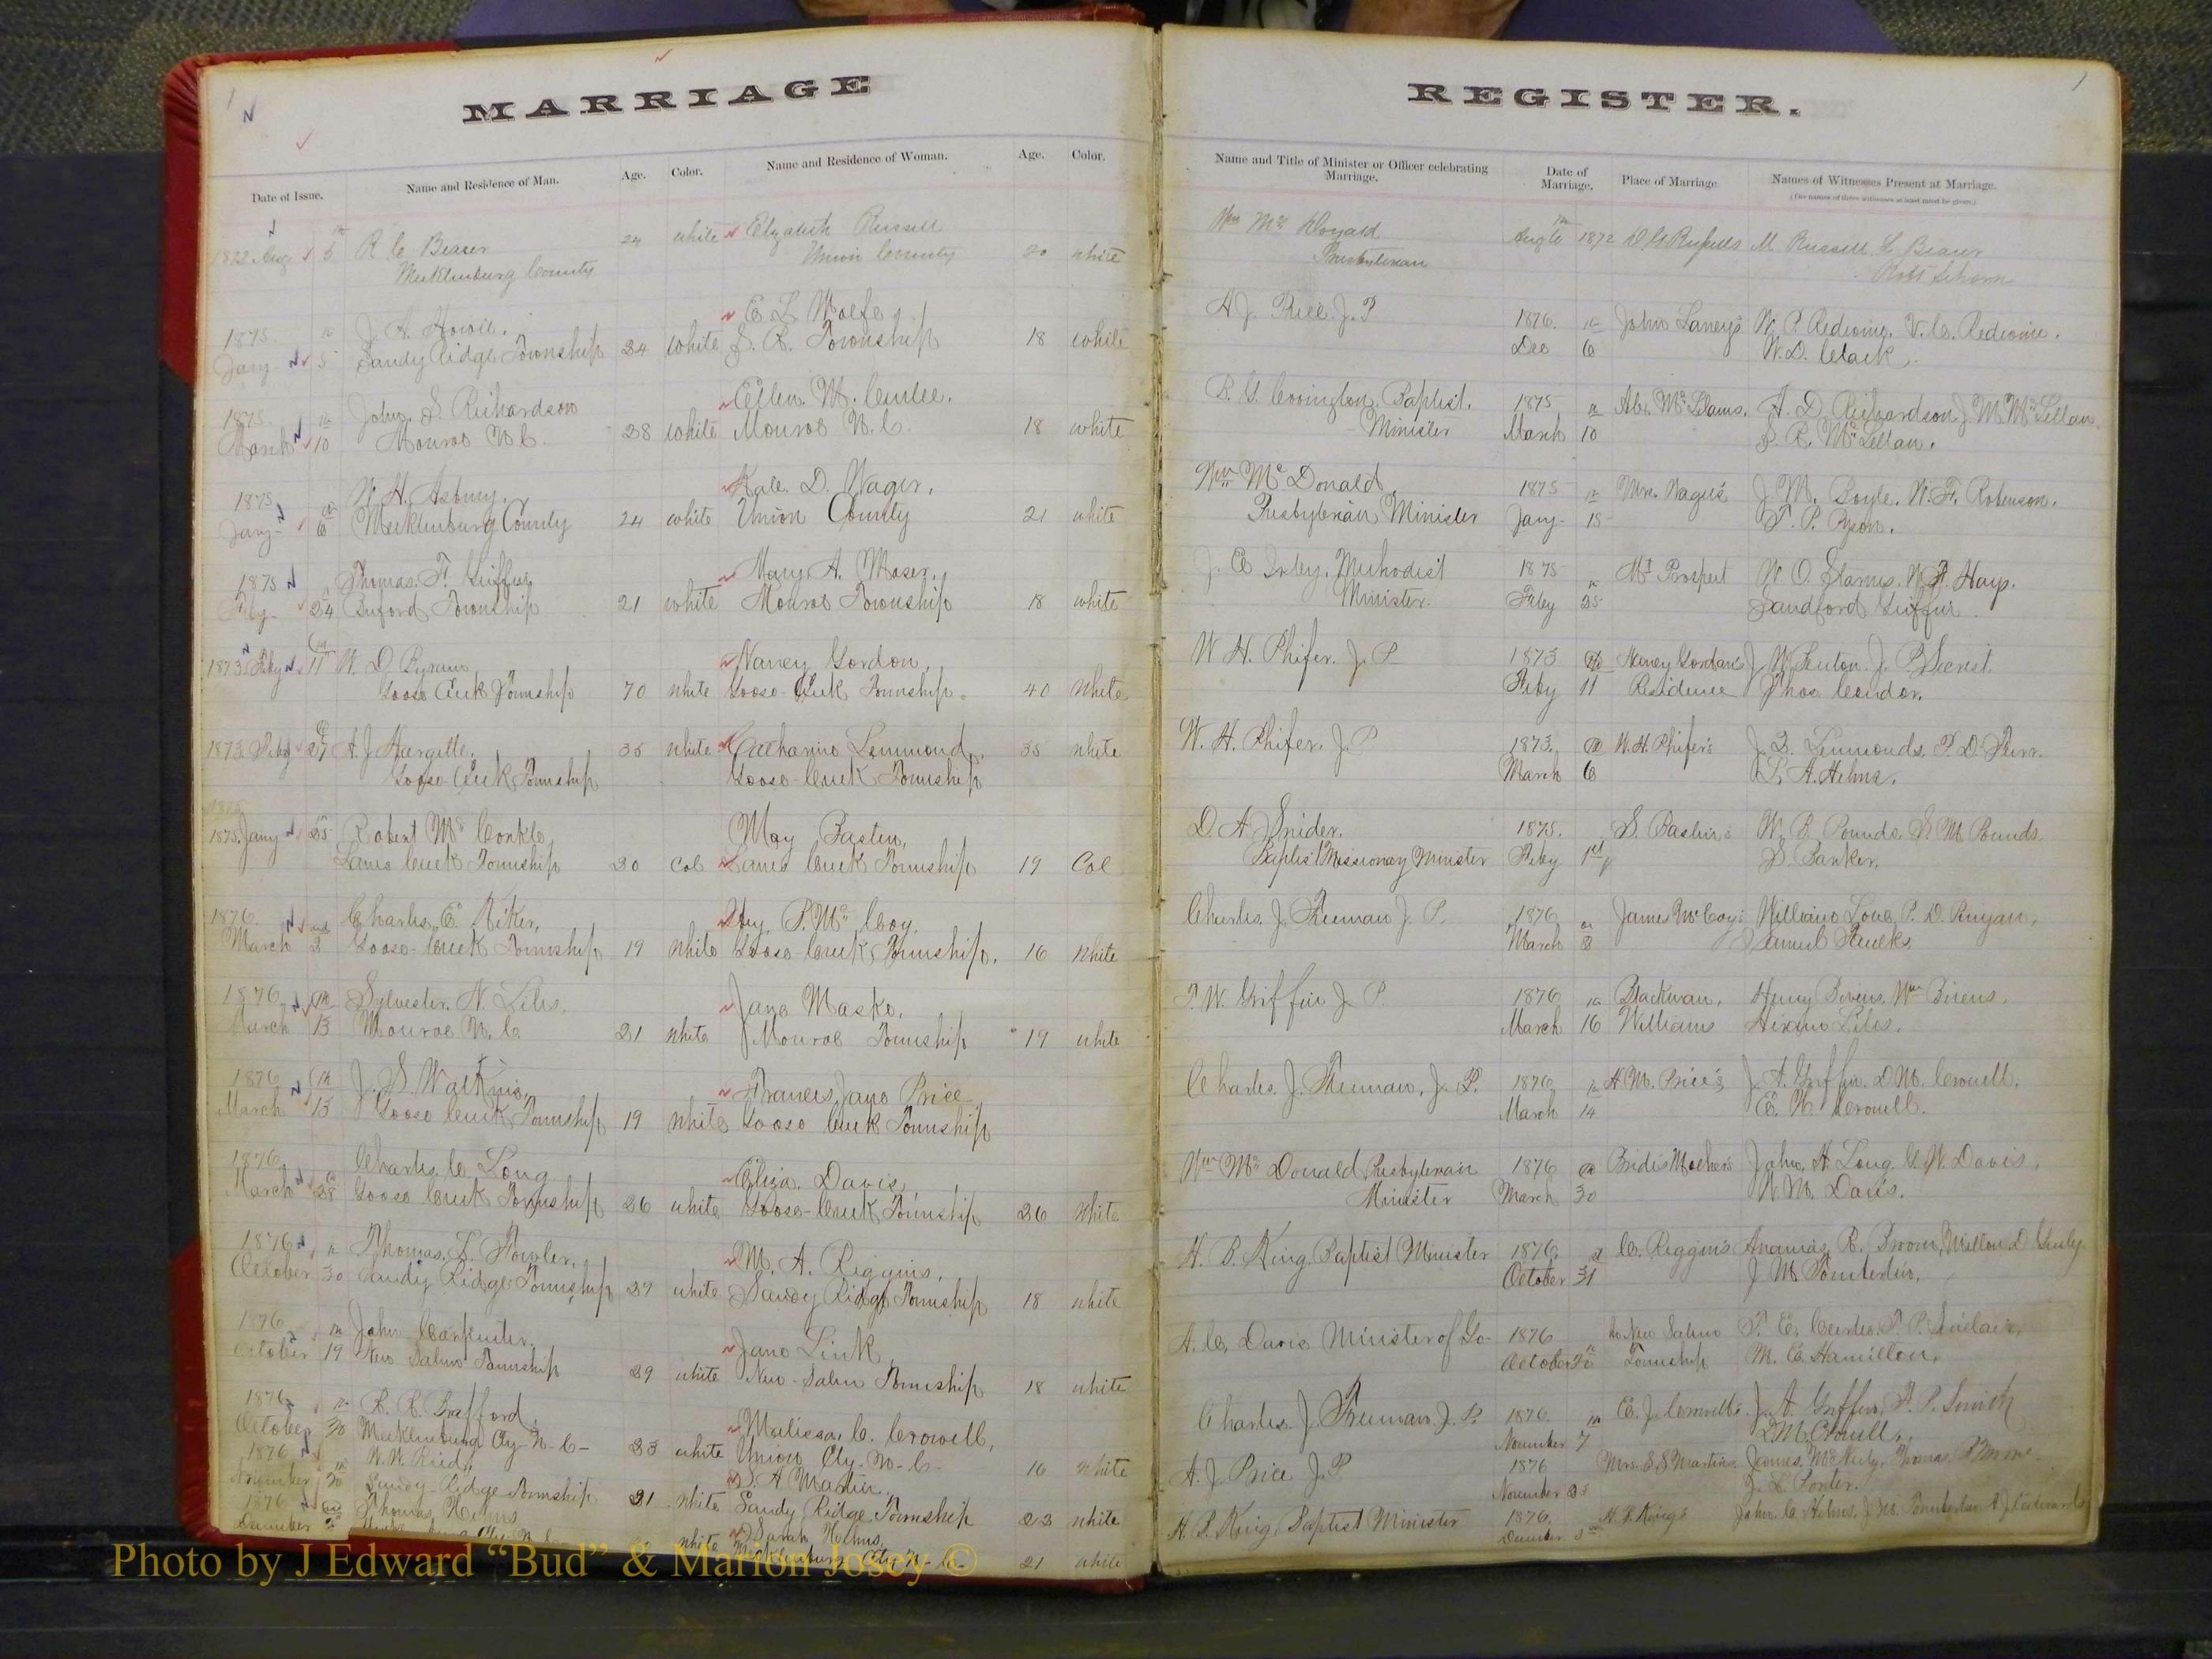 1
MARRIAGE
Date of Issue.
Name and Residence of Man.
Age.
Color.
Name and Residence of Woman.
Age.
Color.
1872 Aug 5th R C Beaser 24 white Elyzabeth Russell
Mecklenburg County Union County 20 white
1875. th J. A. Howie. E. L. Wolfe
Jany 5 Sandy Ridge Township 24 white S. R. Township 18 white
1875. th John. S. Richardson Ellen. M.
March 10 Monroe N. C. 28 white Monroe N. C. 18 white
1875 th W. H. Asbury. Kate. D. Wager.
Jany- 6 Mecklenburg County 24 white Union County 21 white
1875 Thomas. F. Griffin Mary A. Moser.
Feby 24 Buford Township 21 white Monroe Township 18 white
1873. Feby 11th W. D. Byrum Nancy Gordon.
Goose Creek Township 70 white Goose Creek Township. 40 White
1873 Feby 27 A. J. Hargette. 35 white Catharine Lemmond. 35 white
Goose Creek Township Goose-Creek Township
1875. Jany 25 Robert McConkle May Baston,
Lanes Creek Township 20 Col Lanes Creek Township 19 Col
1876. Charles. E. Kiker, P. McCoy.
March 2nd Goose-Creek Township 19 white Goose-Creek Township. 16 white
1876 th Sylvester. N. Liles. Jane Maske.
March 13 Monroe N. C. 21 white Monroe Township 19 white
1876 th J. S. Watkins. Frances Jane Price
March 13 Goose Creek Township 19 white Goose Creek Township
1876 Charles. C. Long Eliza. Davis
March 28 Goose Creek Township 26 white Goose-Creek Township 26 white
1876 Thomas. L. Fowler. M. A. Riggins.
October 30 Sandy Ridge Township 27 white Sandy Ridge Township 18 white
1876 th John Carpenter. Jane Link
October 19 New Salem Township 29 white New-Salem Township 18 white
1876 R. R. Trafford. Malissa. C. Crowell.
October 30 Mecklenburg Cty N-C- 23 white Union Cty. N-C- 16 white
1876 W. W. S. A Martin.
November 20 Sandy-Ridge Township 21 white Sandy Ridge Township 23 white
1876 Thomas Helms Sarah Helms
December white Mecklenburg Cty N-C- 21 white
1
REGISTER.
Name and Title of Minister or Officer celebrating
Marriage.
Date of
Marriage.
Place of Marriage
Names of Witnesses Present at Marriage.
(The names of three witnesses at least must be given.)
Wm McDonald Aug 6th 1872 D G Russells M Russell C Beaser
Presbyterian Robt
A J. Price. J. P 1876. th John Laney's W. P. Redwine. V. C. Redwine.
Dec 6 W. D. Clark
B. G. Covington. Baptist. 1875 th McLellans. A. D. Richardson J M McLellan.
Minister March 10 S. R. McLellan.
Wm McDonald. 1875 th Mrs. Wager's J. M. Boyle. W. F. Robinson.
Presbyterian Minister Jany- 15 T. P. Tyson.
J. E Methodist 1875 th Mt Prospect W. O. Starnes. W. R. Hays.
Minister. Feby 25 Sandford Griffin
W. H. Phifer. J. P 1873 th Nancy Gordan's J. W. Benton. J. P. Secrest.
Feby 11 Residence Thos Condor.
W. H. Phifer. J. P 1873. th W. H. Phifer's J. Q. Lemmonds. P. D. Furr.
March 6 L. A. Helms.
D. A. Snider. 1875. S. Baston's W. B. Pounds. S. M. Pounds
Baptist Missionary Minister Feby 1st S. Parker.
Charles. J. Freeman J. P. 1876 James McCoy's William Love. P. D. Runyan.
March 8 Samuel Faulks.
P. W. Griffin J. P. 1876 th Blackman. Henry Bivens. Wm Bivens.
March 16 Williams Hiram Liles.
Charles. J. Freeman. J. P. 1876 th A. M. Price's J. A. Griffin. D. M. Crowell.
March 14 E. W. Crowell.
Wm McDonald Presbyterian 1876 th Brides Mother's John. A. Long. G. W. Davis.
Minister March 30 W. M. Davis.
H. B. King Baptist Minister 1876 st C. Riggin's Ananias R. Broom,
October 31 J M Pomberton.
A. C. Davis Minister of Go- 1876 In New Salem T. E. P. P. Sinclair.
October 20th Township M. C. Hamilton.
Charles. J. Freeman. J. P. 1876. th E. J. Crowell's. J. A. Griffin, F. P. Smith
November 7 D M Crowell.
A. J. Price J. P. 1876 Mrs. S. S Martins James. McNeely. Thomas.
November 23 J. L. Porter.
H. B. King Baptist Minister 1876 H. B. King's John. C Helms. J W Pomberton A J Edwards
December 3
Photo by J Edward “Bud” & Marion Josey ©